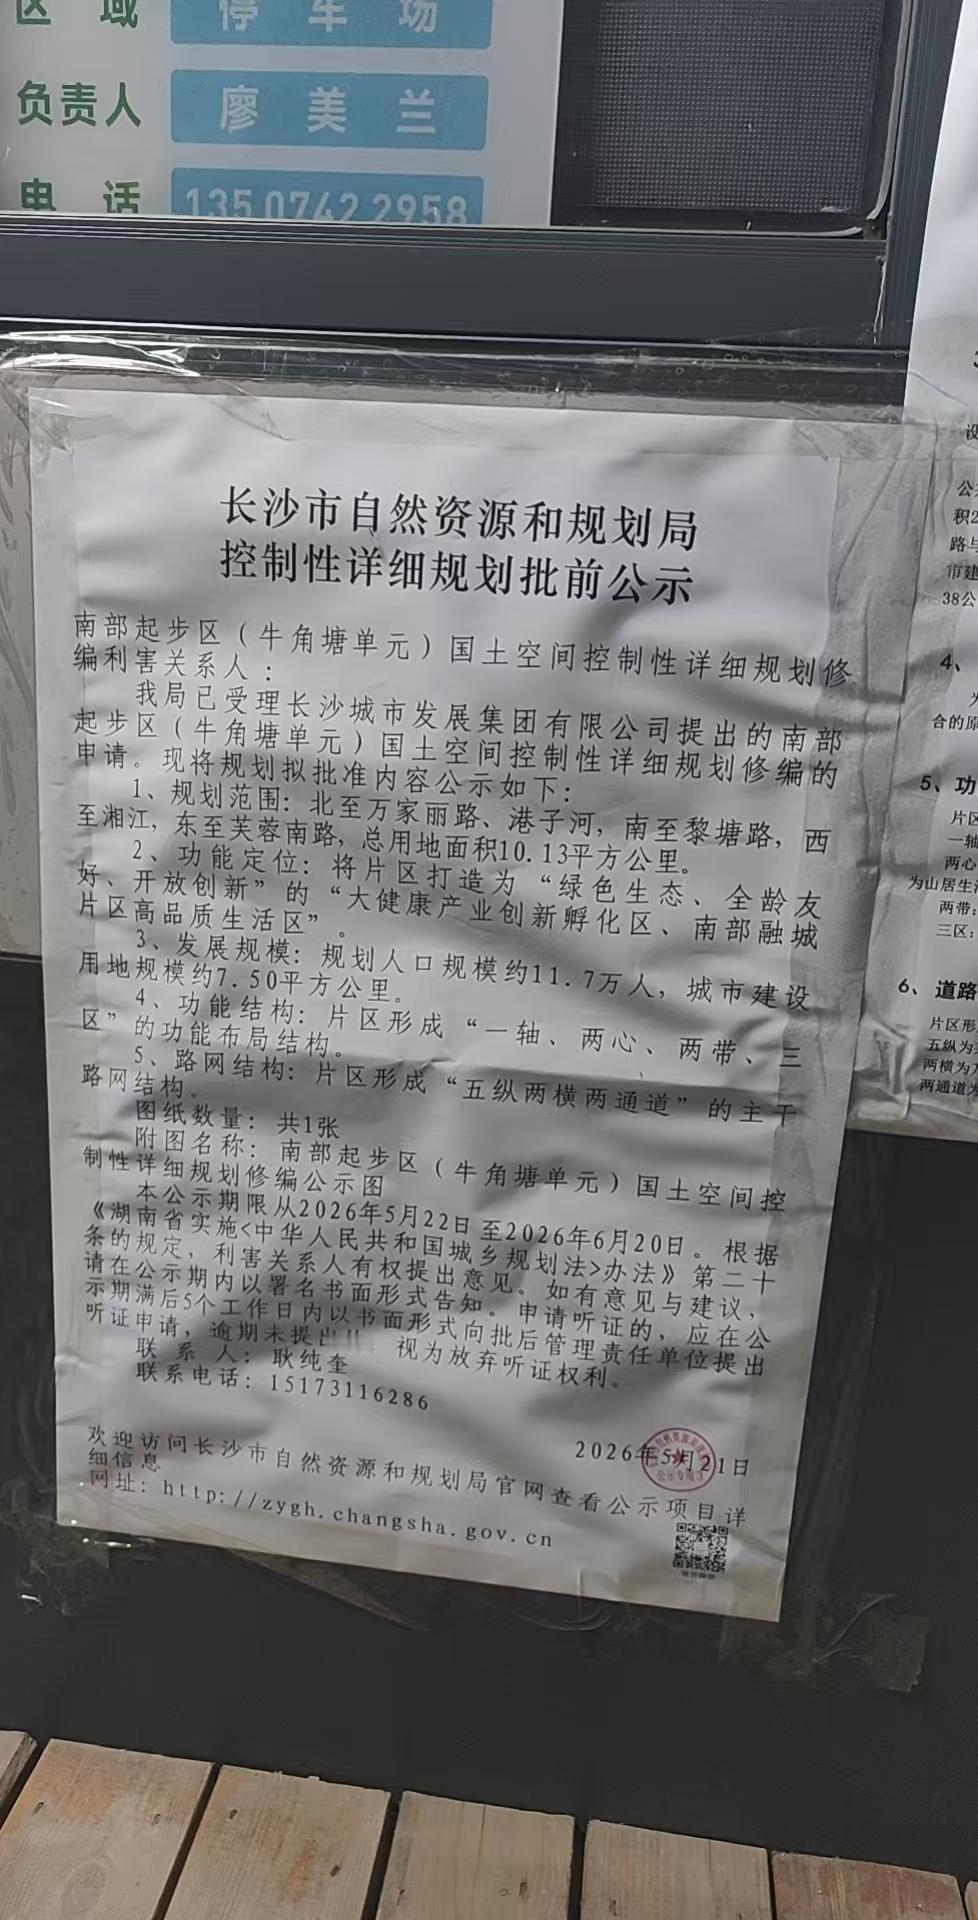 区域 停车场
负责人 廖美兰
电话 135 0742 2958
长沙市自然资源和规划局
控制性详细规划批前公示
南部起步区(牛角塘单元)国土空间控制性详细规划修
编利害关系人:
我局已受理长沙城市发展集团有限公司提出的南部
起步区(牛角塘单元)国土空间控制性详细规划修编的
申请。现将规划拟批准内容公示如下:
1、规划范围: 北至万家丽路、港子河, 南至黎塘路, 西
至湘江, 东至芙蓉南路, 总用地面积10.13平方公里。
2、功能定位: 将片区打造为“绿色生态、全龄友
好、开放创新”的“大健康产业创新孵化区、南部融城
片区高品质生活区”。
3、发展规模: 规划人口规模约11.7万人, 城市建设
用地规模约7.50平方公里。
4、功能结构: 片区形成“一轴、两心、两带、三
区”的功能布局结构。
5、路网结构: 片区形成“五纵两横两通道”的主干
路网结构。
图纸数量: 共1张
附图名称: 南部起步区(牛角塘单元)国土空间控
制性详细规划修编公示图
本公示期限从2026年5月22日至2026年6月20日。根据
《湖南省实施<中华人民共和国城乡规划法>办法》第二十
条的规定, 利害关系人有权提出意见。如有意见与建议,
请在公示期内以署名书面形式告知。申请听证的, 应在公
示期满后5个工作日内以书面形式向批后管理责任单位提出
听证申请, 逾期未提出 视为放弃听证权利。
联 系 人: 耿纯奎
联系电话: 15173116286
2026年5月21日
公示专用章
欢迎访问长沙市自然资源和规划局官网查看公示项目详
细信息
网址: http://zygh.changsha.gov.cn
设
公
积2
路与
市建
38公
4、
合的原
5、功
片区
一轴
两心
为山居生
两带:
三区:
6、道路
片区形
五纵为
两横为
两通道为